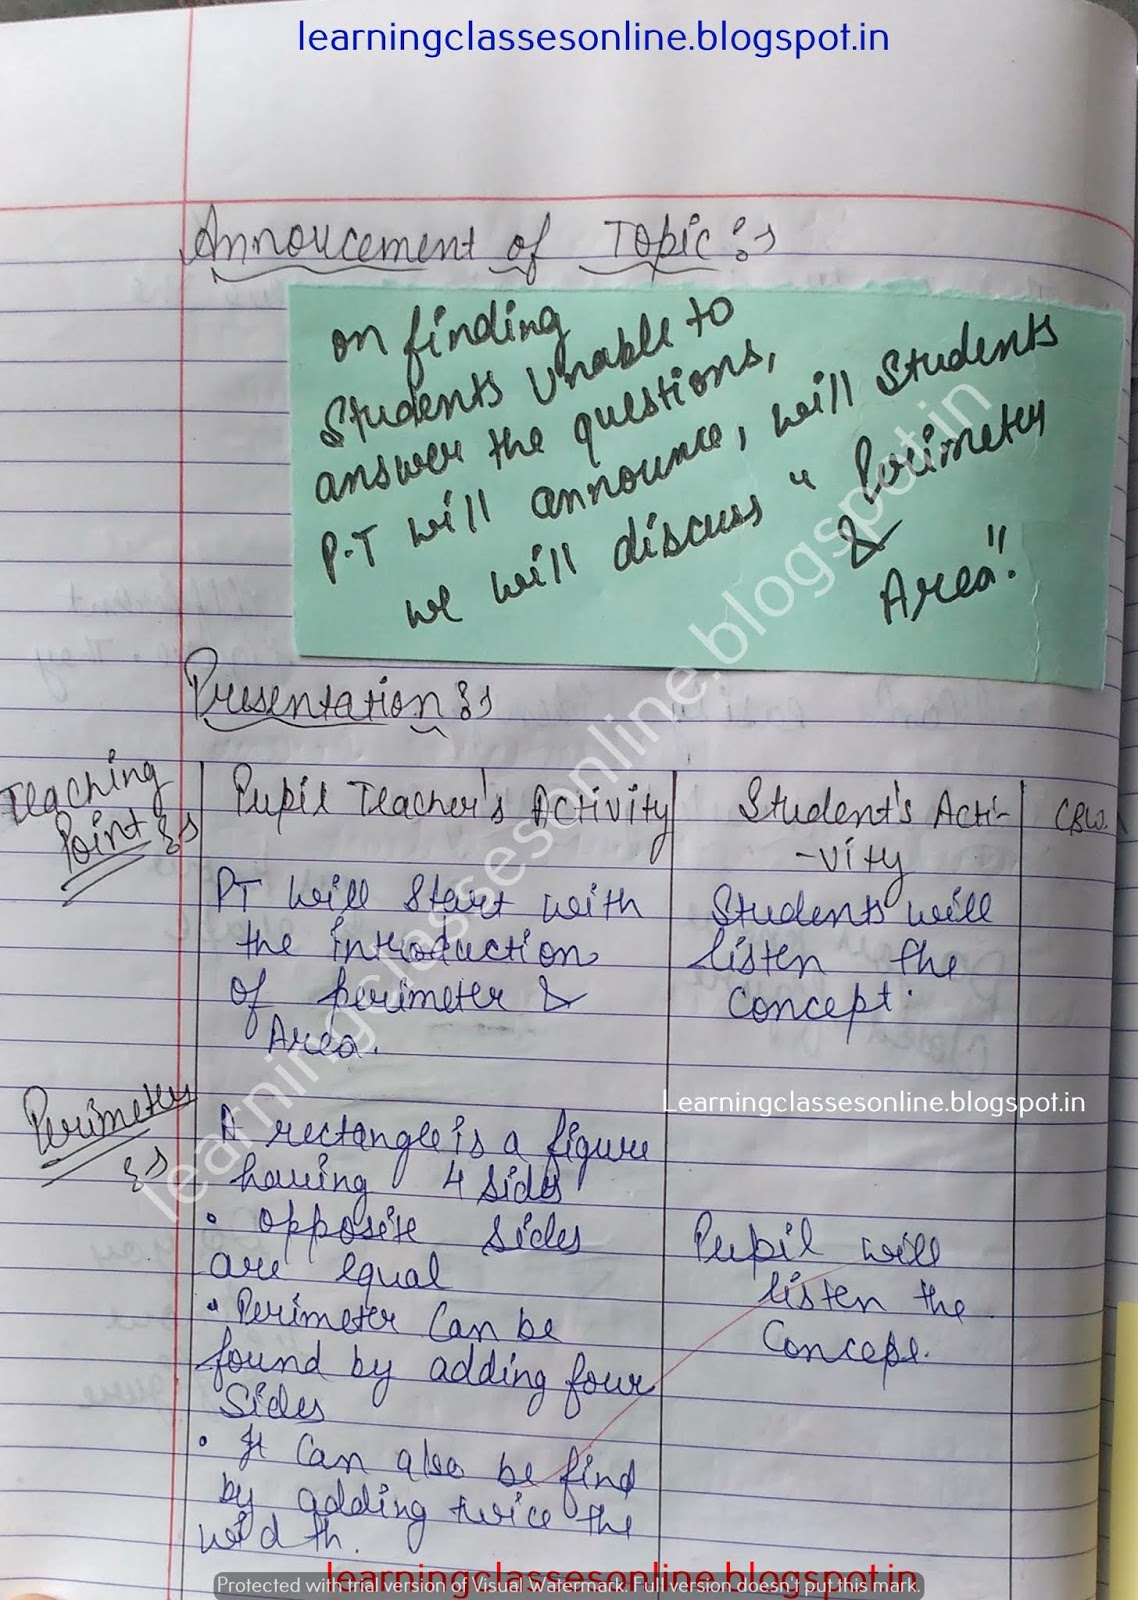 learningclassesonline.blogspot.in
Annoucement of Topic :-
on finding
Students Unable to
answer the questions,
P.T will announce, will Students
we will discuss "Perimeter
&
Area."
Presentation :-
Teaching Point :-
Pupil Teacher's Activity
Student's Acti-
-vity
CBW.
PT will Start with
the introduction
of perimeter &
Area.
Students will
listen the
Concept.
Learningclassesonline.blogspot.in
Perimeter :-
A rectangle is a figure
having 4 sides
• opposite sides
are equal
• Perimeter Can be
found by adding four
Sides
• It Can also be find
by adding twice the
width.
Pupil will
listen the
Concept.
learningclassesonline.blogspot.in
learningclassesonline.blogspot.in
Protected with trial version of Visual Watermark. Full version doesn't put this mark.